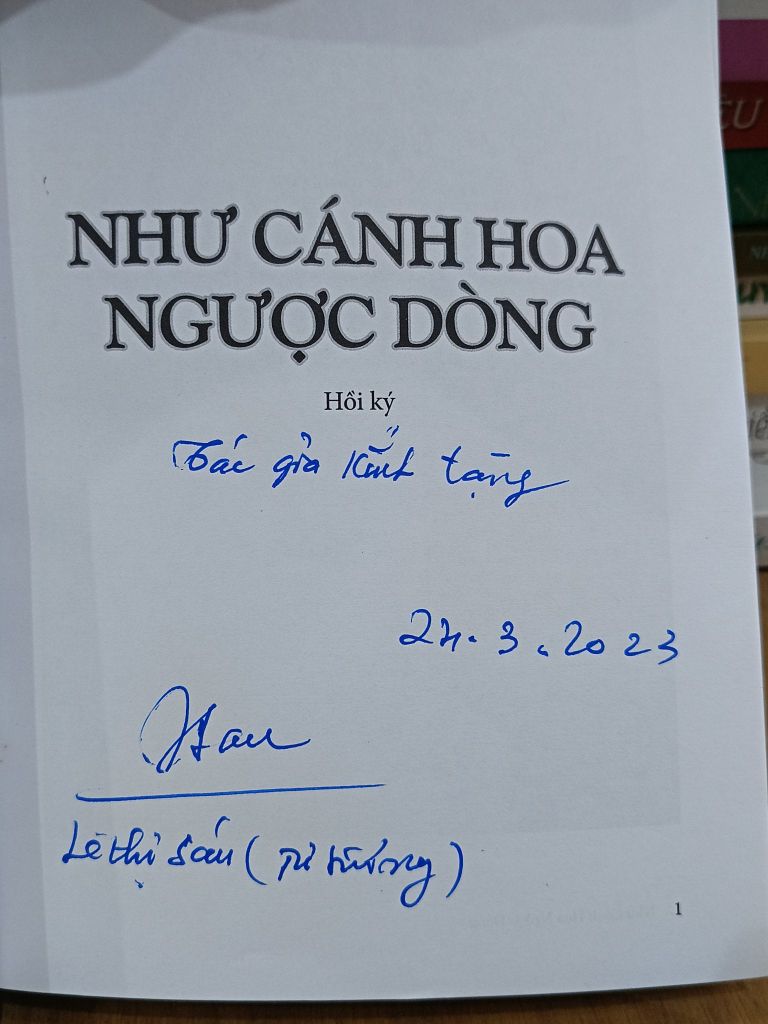 NHƯ CÁNH HOA
NGƯỢC DÒNG
Hồi ký
Tác giả kính tặng
24.3.2023
Lê thị Sáu (
1
ÊU